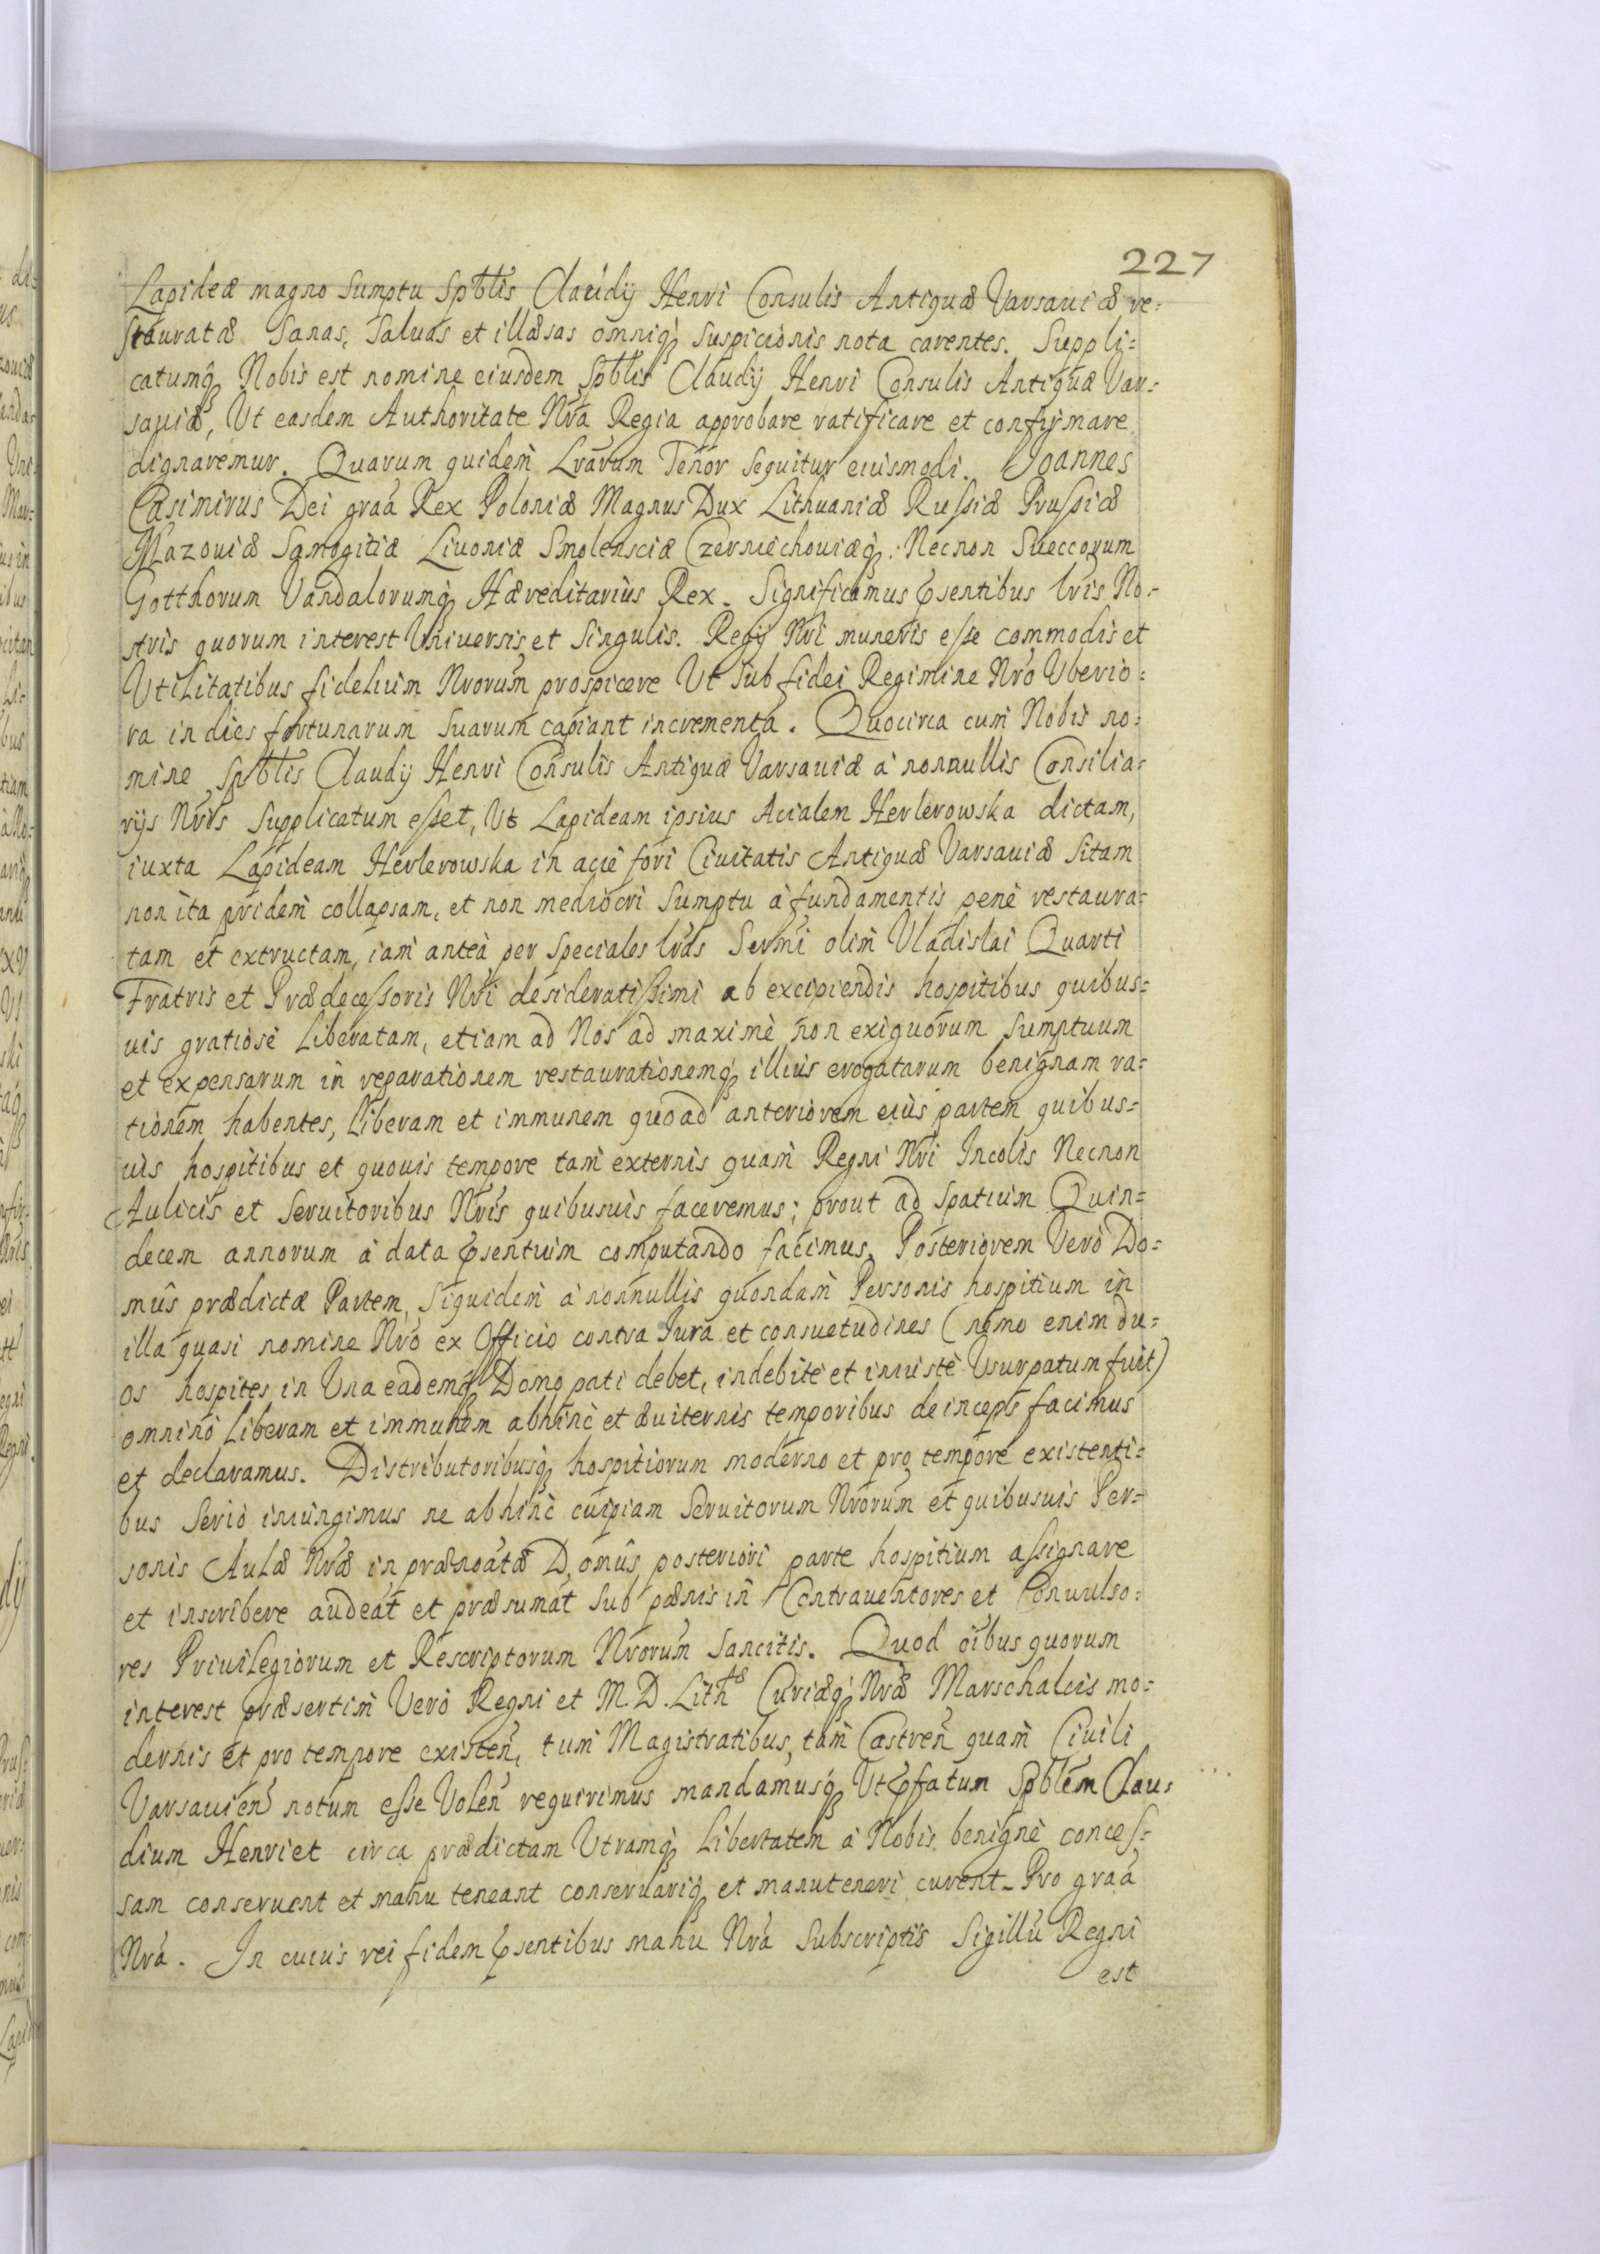 227
Lapideæ magno Sumptu Spblis Claudij Henri Consulis Antiquæ Varsauiæ re=
stauratæ Sanas, Saluas et illæsas omniq3 suspicionis nota carentes. Suppli=
catumq3 Nobis est nomine eiusdem Spblis Claudij Henri Consulis Antiquæ Var=
sauiæ, Ut easdem Authoritate Nra Regia approbare ratificare et confirmare
dignaremur. Quarum quidem Lrarum Tenor sequitur eiusmodi. Joannes
Casimirus Dei graa Rex Poloniæ Magnus Dux Lithuaniæ Russiæ Prussiæ
Mazouiæ Samogitiæ Liuoniæ Smolensciæ Czerniechouiæq3: Necnon Sueccorum
Gotthorum Vandalorumq3 Hæreditarius Rex. Significamus Psentibus lris No=
stris quorum interest Uniuersis et Singulis. Regij Nri muneris esse commodis et
Utilitatibus fidelium Nrorum prospicere Ut sub fidei Regimine Nro Uberio=
ra in dies fortunarum suarum capiant incrementa. Quocirca cum Nobis no=
mine Spblis Claudij Henri Consulis Antiquæ Varsauiæ à nonnullis Consilia=
rijs Nris Supplicatum esset, Ut Lapideam ipsius Acialem Herlerowska dictam,
iuxta Lapideam Herlerowska in acie fori Ciuitatis Antiquæ Varsauiæ Sitam
non ita pridem collapsam, et non mediocri Sumptu à fundamentis penè restaura=
tam et extructam, iam anteà per speciales lras Sermi olim Vladislai Quarti
Fratris et Prædecessoris Nri desideratissimi ab excipiendis hospitibus quibus=
uis gratiosè Liberatam, etiam ad Nos ad maximè non exiguorum Sumptuum
et expensarum in reparationem restaurationemq3 illius erogatarum benignam ra=
tionem habentes, Liberam et immunem quoad anteriorem eius partem quibus=
uis hospitibus et quouis tempore tam externis quam Regni Nri Incolis Necnon
Aulicis et Seruitoribus Nris quibusuis faceremus; prout ad spatium Quin=
decem annorum à data Psentium computando facimus. Posteriorem Verò Do=
mûs prædictæ Partem, Siquidem à nonnullis quondam Personis hospitium in
illa quasi nomine Nro ex Officio contra Iura et consuetudines (nemo enim du=
os hospites in Una eademq3 Domo pati debet, indebitè et iniustè Usurpatum fuit)
omnino Liberam et immunem abhinc et æuiternis temporibus deinceps facimus
et declaramus. Distributoribusq3 hospitiorum moderno et pro tempore existenti=
bus Seriò iniungimus ne abhinc cuipiam Seruitorum Nrorum et quibusuis Per=
sonis Aulæ Nræ in prænoatæ Domûs posteriori parte hospitium assignare
et inscribere audeat et præsumat sub pænis in Contrauentores et Conuulso=
res Priuilegiorum et Rescriptorum Nrorum Sancitis. Quod oibus quorum
interest præsertim Verò Regni et M. D. Lithæ Curiæq3 Nræ Marschalcis mo=
dernis et pro tempore existen, tum Magistratibus, tam Castren quam Ciuili
Varsauien notum esse Volen requirimus mandamusq3 Ut Pfatum Spblem Clau=
dium Henri et circa prædictam Utramq3 Libertatem à Nobis benignè conces=
sam conseruent et manu teneant conseruariq3 et manuteneri curent. Pro graa
Nra. In cuius rei fidem Psentibus manu Nra Subscriptis Sigillu Regni
est